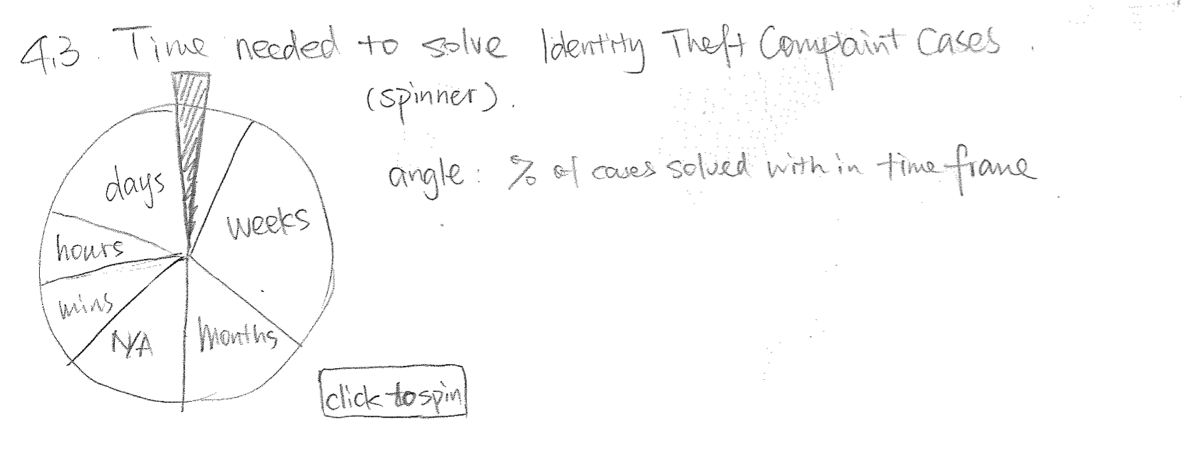 4.3. Time needed to solve Identity Theft Compaint Cases.
(spinner).
angle: % of cases solved with in time frame
days
weeks
hours
mins
N/A
Months
click to spin